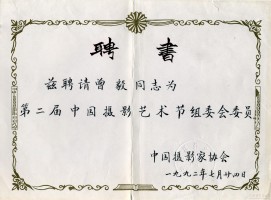 聘書
兹聘请曾毅同志为
第二届中国摄影艺术节组委会委员
中国摄影家协会
一九九二年七月廿四日